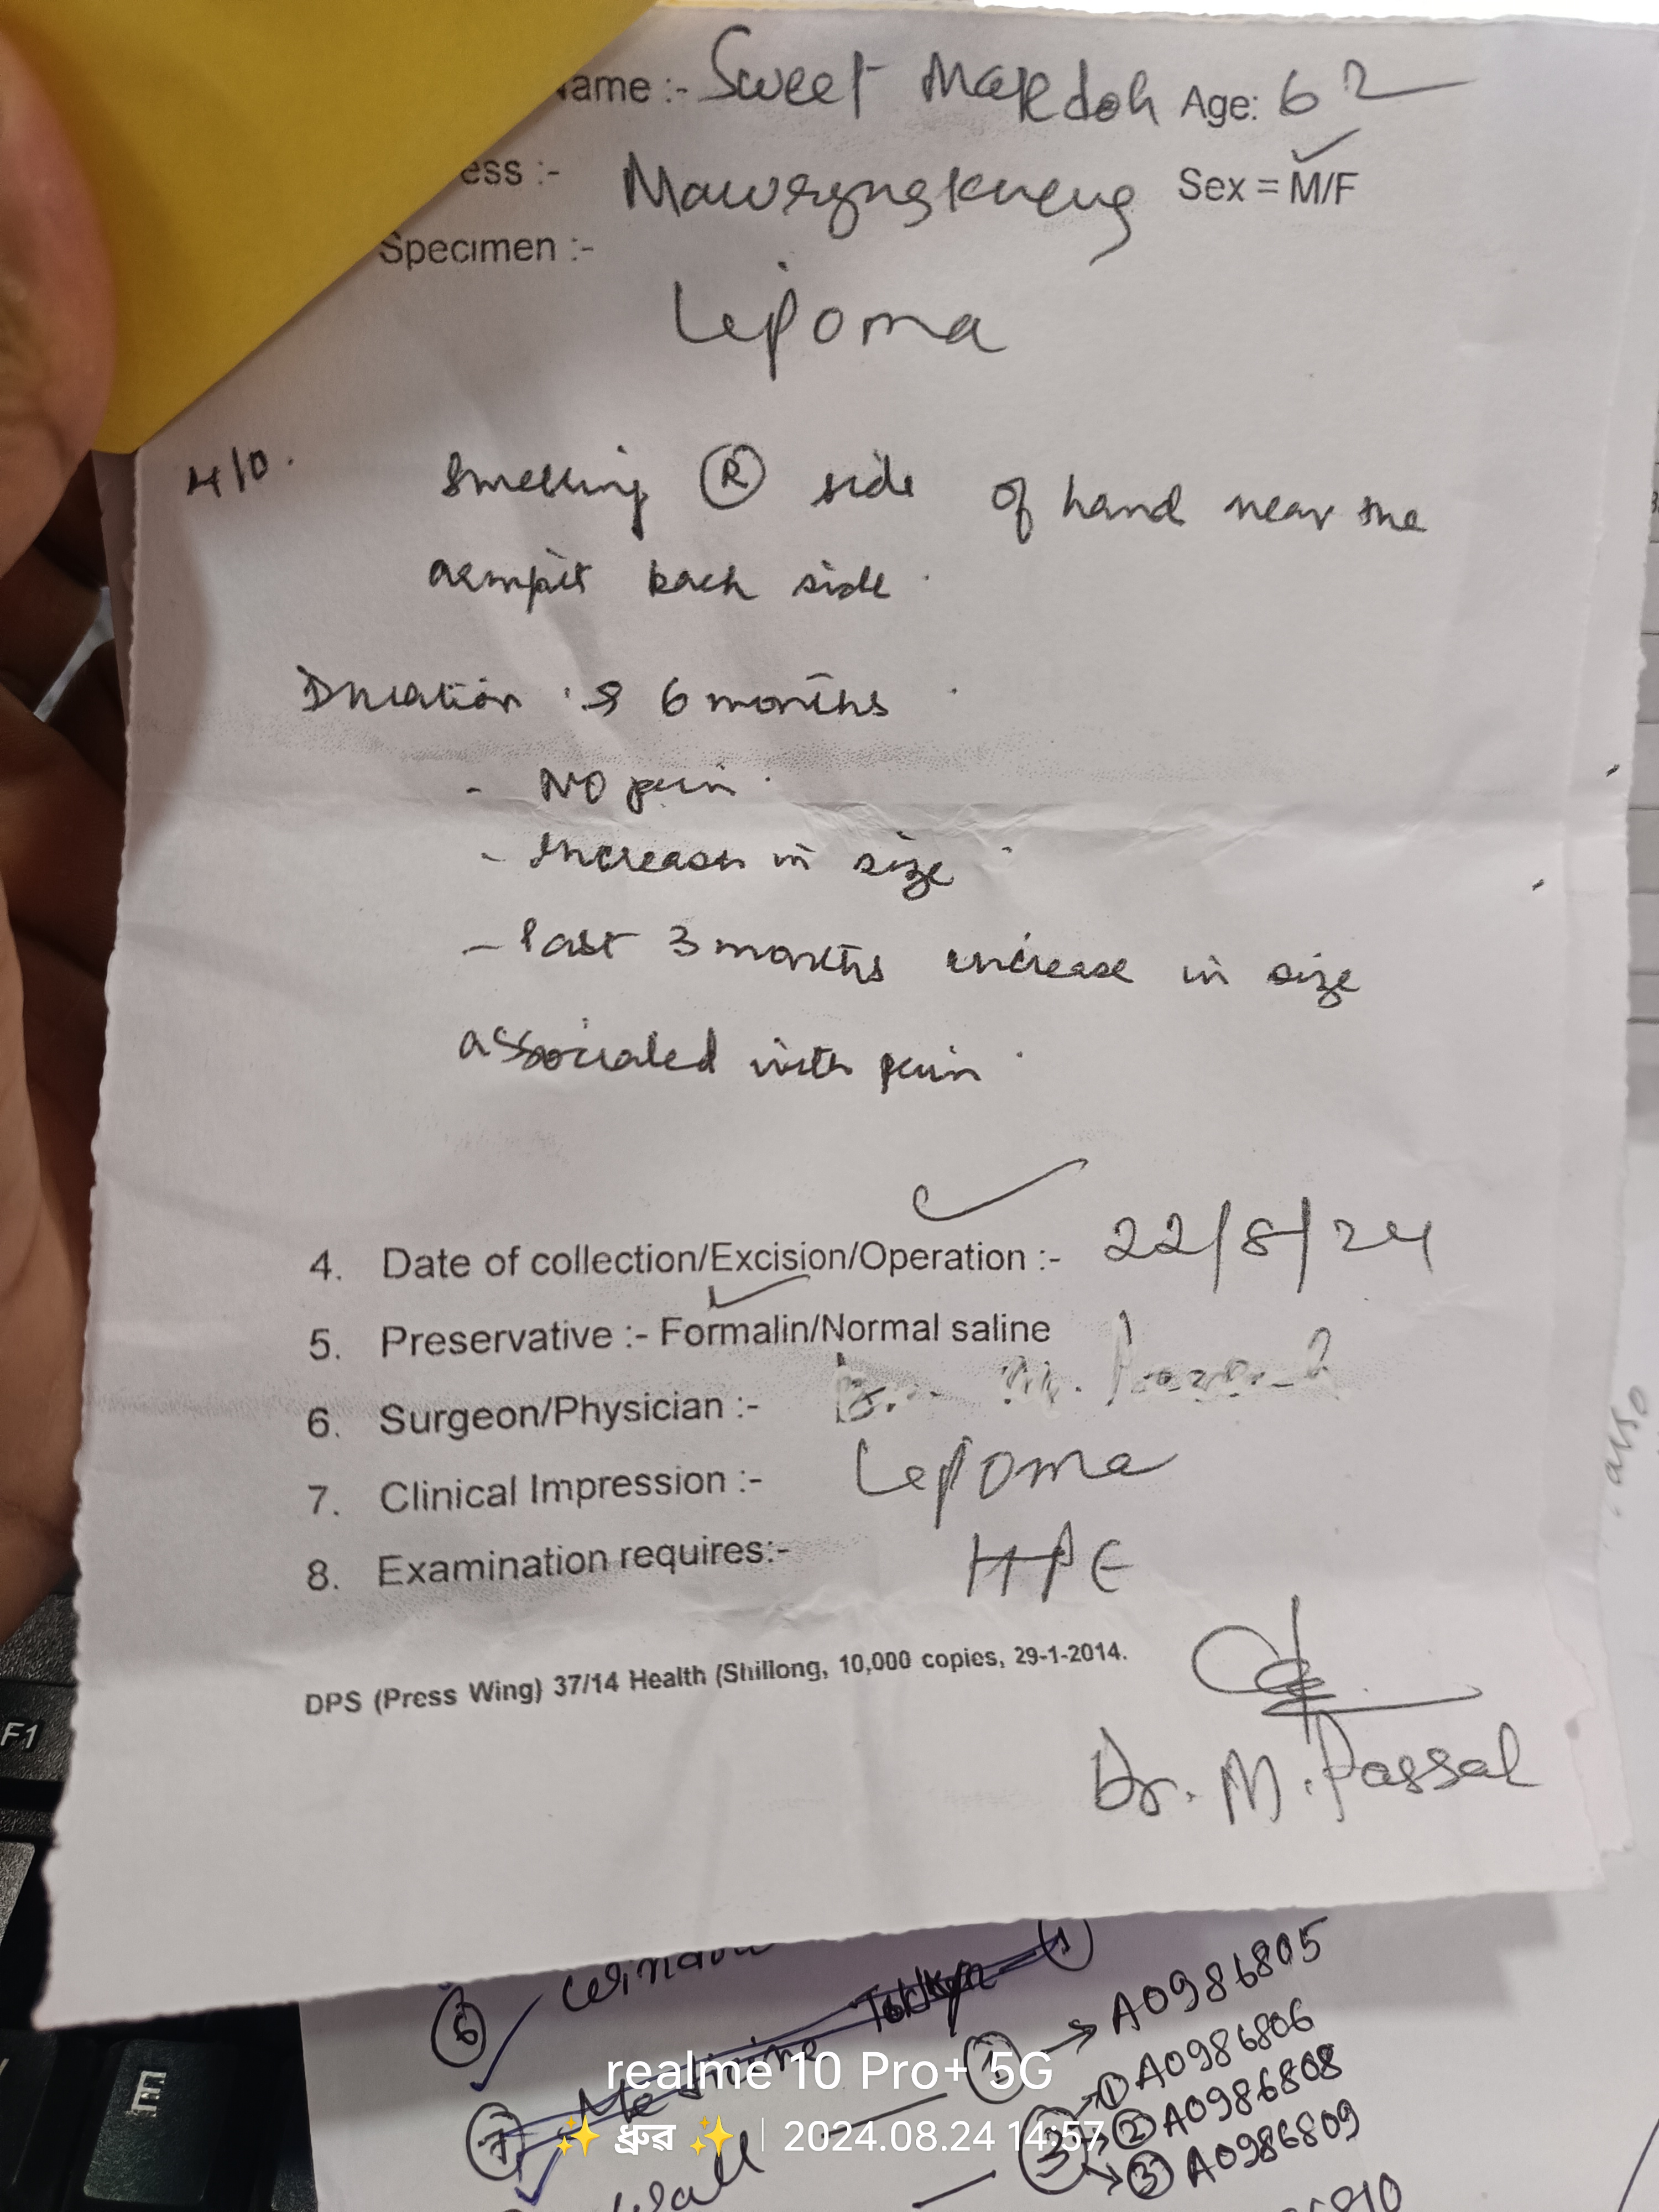 Name :- Sweet Makdoh Age: 62
ess :- Mawryngkneng Sex = M/F
Specimen :-
Lipoma
H/O. Swelling (R) side of hand near the
armpit back side.
Duration :→ 6 months.
- NO pain.
- Increase in size.
- last 3 months increase in size
associated with pain.
4. Date of collection/Excision/Operation :- 22/8/24
5. Preservative :- Formalin/Normal saline
6. Surgeon/Physician :-
7. Clinical Impression :- Lipoma
8. Examination requires:- HPE
DPS (Press Wing) 37/14 Health (Shillong, 10,000 copies, 29-1-2014.
Dr. M. Passal
6
7 Medicine
1 → A0986805
3 → 1 A0986806
→ 2 A0986808
→ 3 A0986809
F1
E
realme 10 Pro+ 5G
✨ ধ্রুৱ ✨ | 2024.08.24 14:57